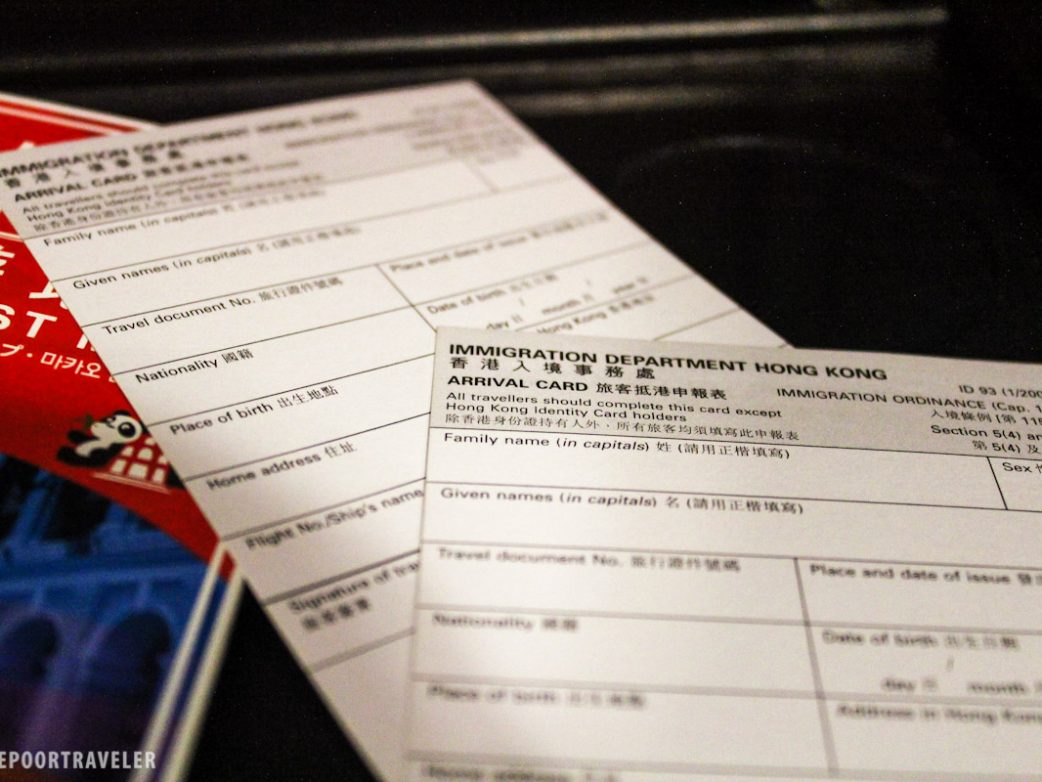 IMMIGRATION DEPARTMENT HONG KONG
香港入境事務處
ARRIVAL CARD 旅客抵港申報表
All travellers should complete this card except
Hong Kong Identity Card holders
除香港身份證持有人外，所有旅客均須填寫此申報表
Family name (in capitals) 姓 (請用正楷填寫)
Given names (in capitals) 名 (請用正楷填寫)
Travel document No. 旅行證件號碼
Place and date of issue
Nationality 國籍
Date of birth 出生日期
/ /
day 日 month 月 year 年
Place of birth 出生地點
Hong Kong
Home address 住址
Flight No./Ship's name
Signature of
IMMIGRATION DEPARTMENT HONG KONG
香港入境事務處
ARRIVAL CARD 旅客抵港申報表
All travellers should complete this card except
Hong Kong Identity Card holders
除香港身份證持有人外，所有旅客均須填寫此申報表
ID 93 (1/200
IMMIGRATION ORDINANCE (Cap. 1
入境條例 [第 11
Section 5(4) an
第 5(4) 及
Family name (in capitals) 姓 (請用正楷填寫)
Sex
Given names (in capitals) 名 (請用正楷填寫)
Travel document No. 旅行證件號碼
Place and date of issue
Nationality 國籍
Date of birth 出生日期
/
day 日 month
Place of birth 出生地點
Address in Hong Kong
Home address
ST
プ・마카오
EPOORTRAVELER